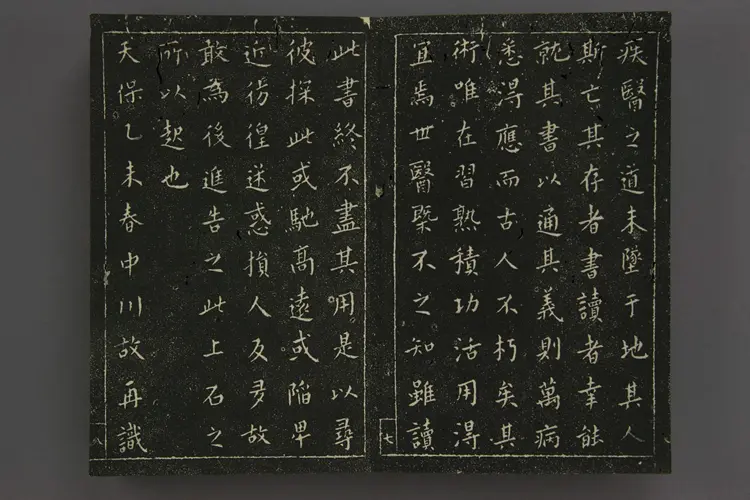 疾醫之道未墜于地其人
斯亡其存者書讀者幸能
就其書以通其義則萬病
悉得應而古人不朽矣其
術唯在習熟積功活用得
宜焉世醫槩不之知雖讀
七
此書終不盡其用是以尋
彼探此或馳高遠或陥卑
近彷徨迷惑損人及多故
敢為後進告之此上石之
所以起也
天保乙未春中川故再識
八